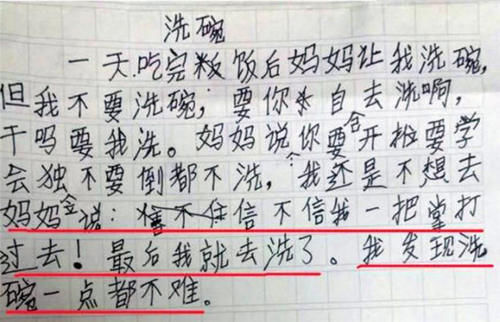 洗碗
一天.吃完饭后妈妈让我洗碗，
但我不要洗碗，要你自去洗啊，
干吗要我洗。妈妈说你要开学
会独不要倒都不洗，我还是不想去
妈妈说：信不信我一把掌打
过去！最后我就去洗了。我发现洗
碗一点都不难。